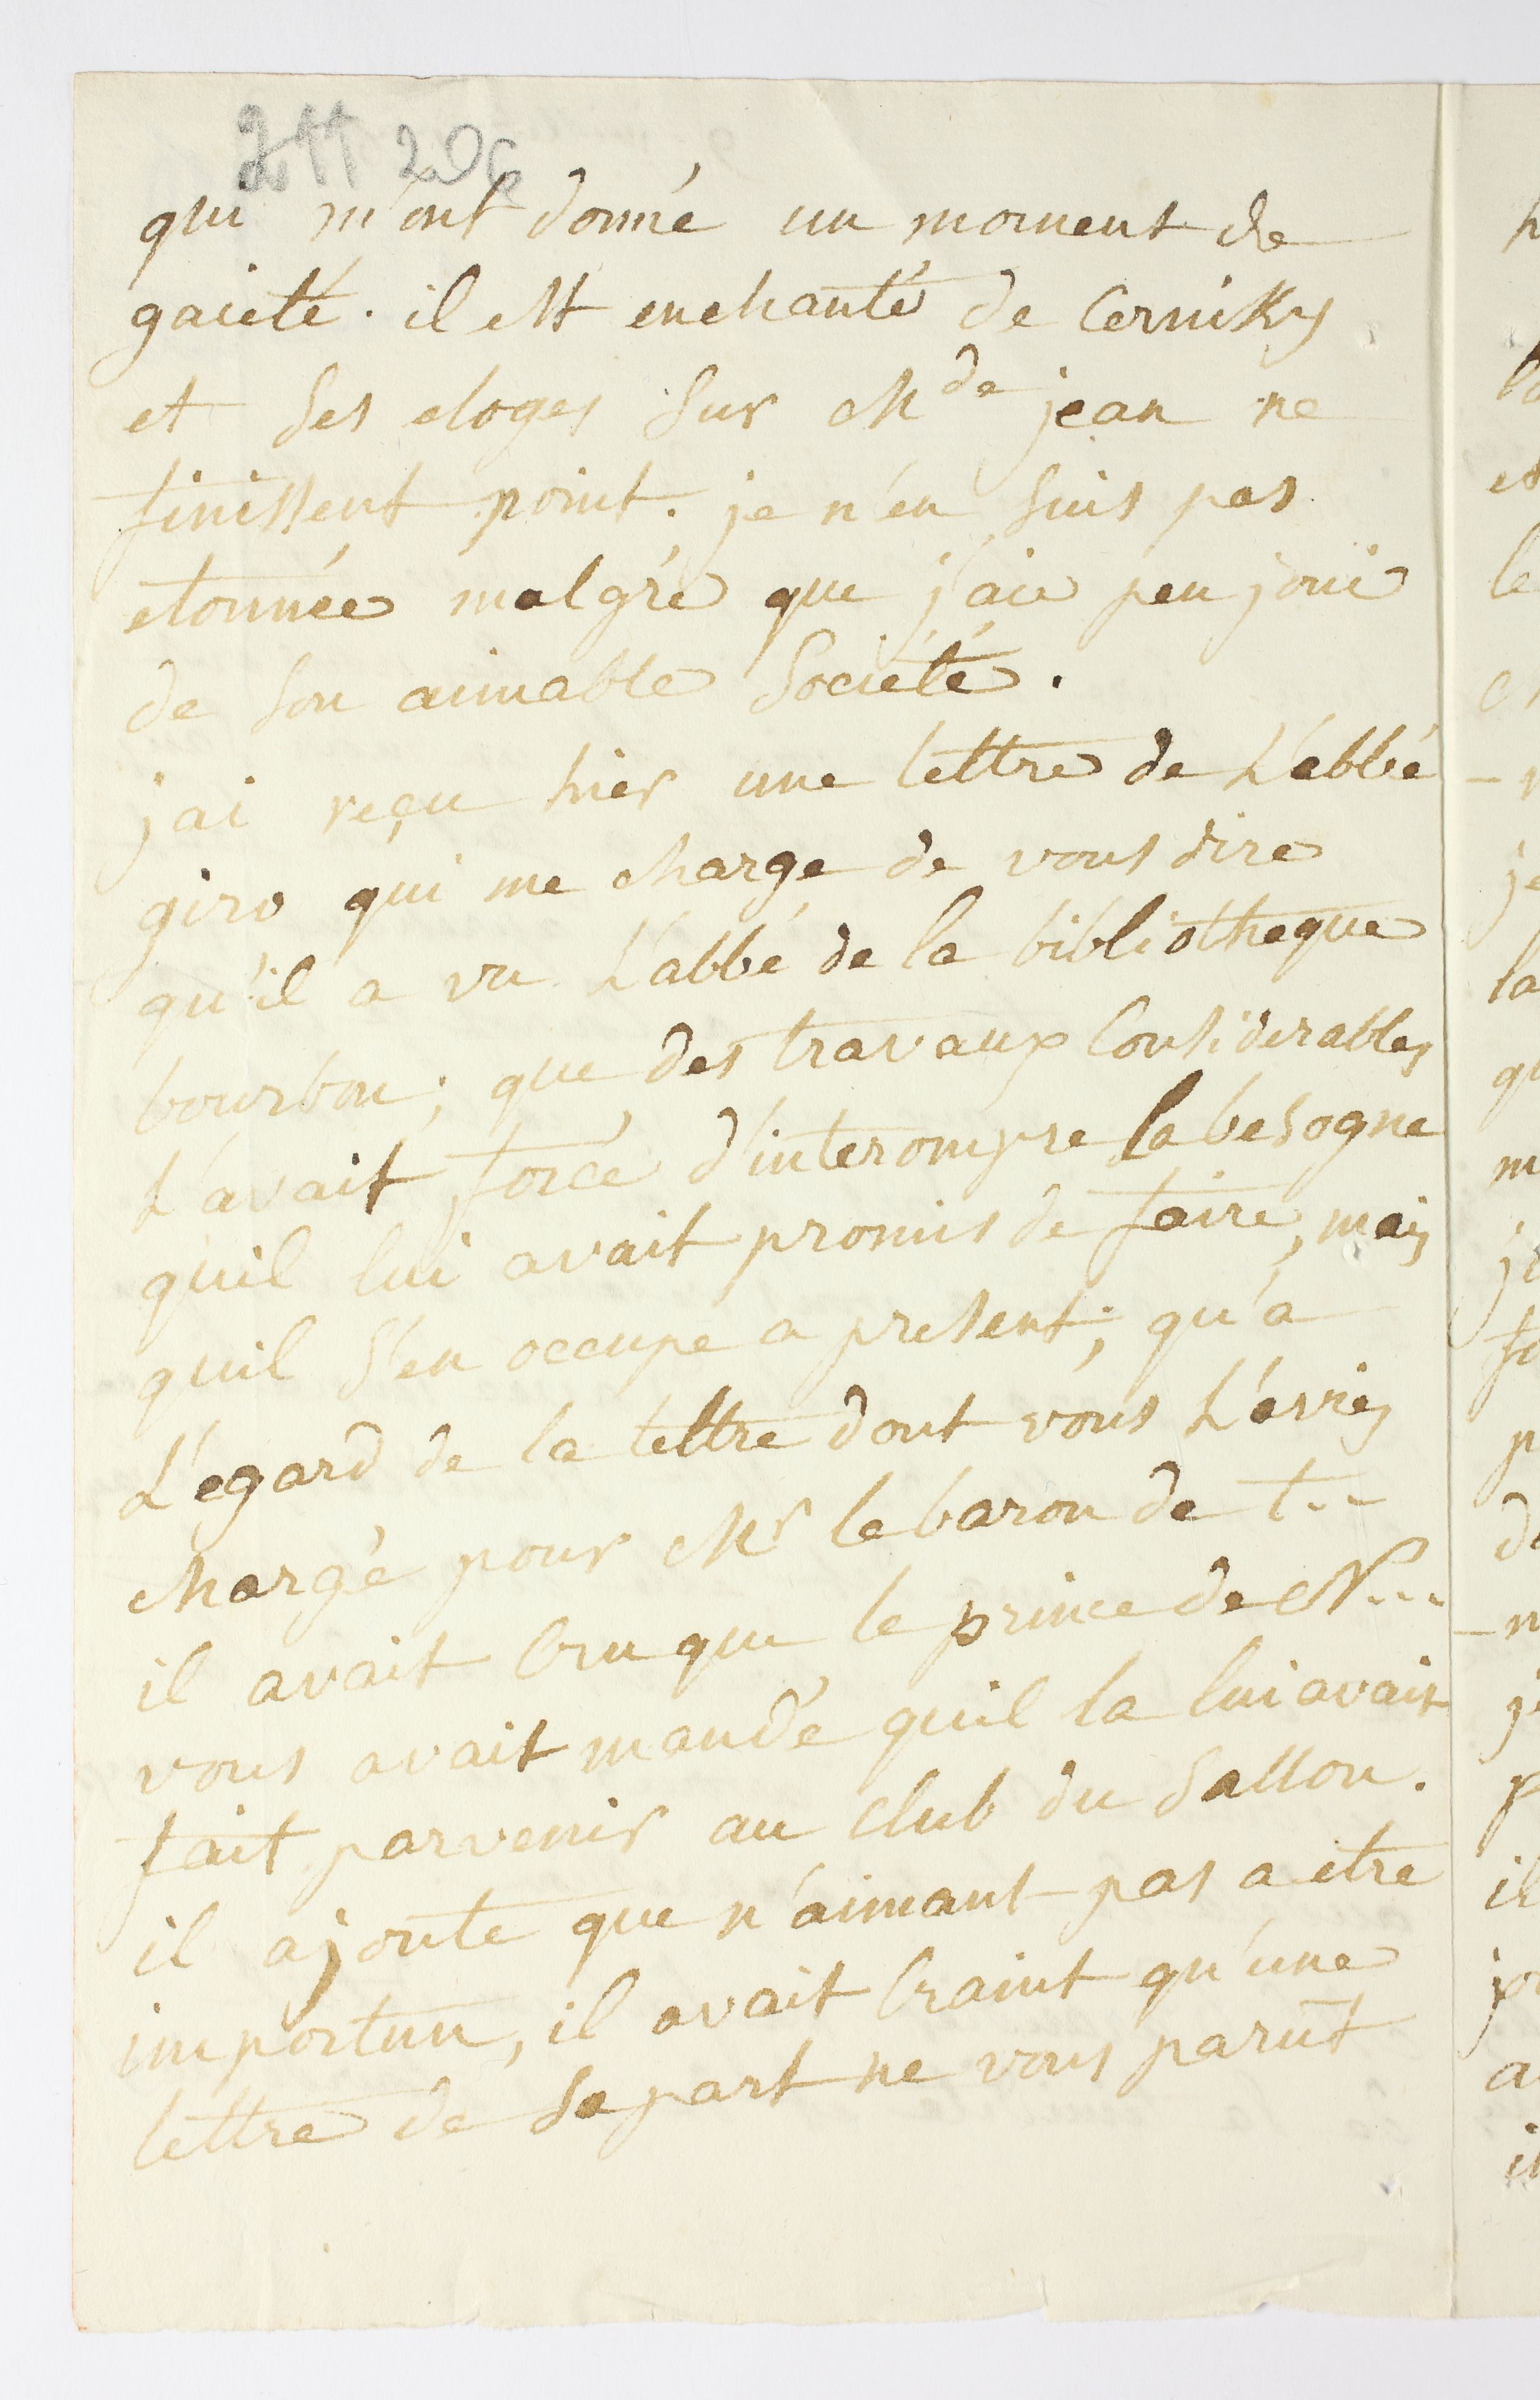 211 206
qui m'ont donné un moment de
gaieté. il est enchanté de Cerniky
et ses eloges sur Mde jean ne
finissent point. je n'en suis pas
etonnée malgré que j'aie peu joui
de son aimable Société.
j'ai reçu hier une lettre de L'abbé
giro qui me charge de vous dire
qu'il a vu L'abbé de la bibliotheque
bourbon; que des travaux Considerables
L'avait forcé d'interompre la besogne
quil lui avait promis de faire, mais
quil s'en occupe a present; qu'a
L'egard de la lettre dont vous L'aviez
chargé pour Mr le baron de t...
il avait Cru que le prince de N...
vous avait mandé quil la lui avait
fait parvenir au Club du Sallon.
il ajoute que n'aimant pas a etre
importun, il avait Craint qu'une
lettre de Sa part ne vous parut